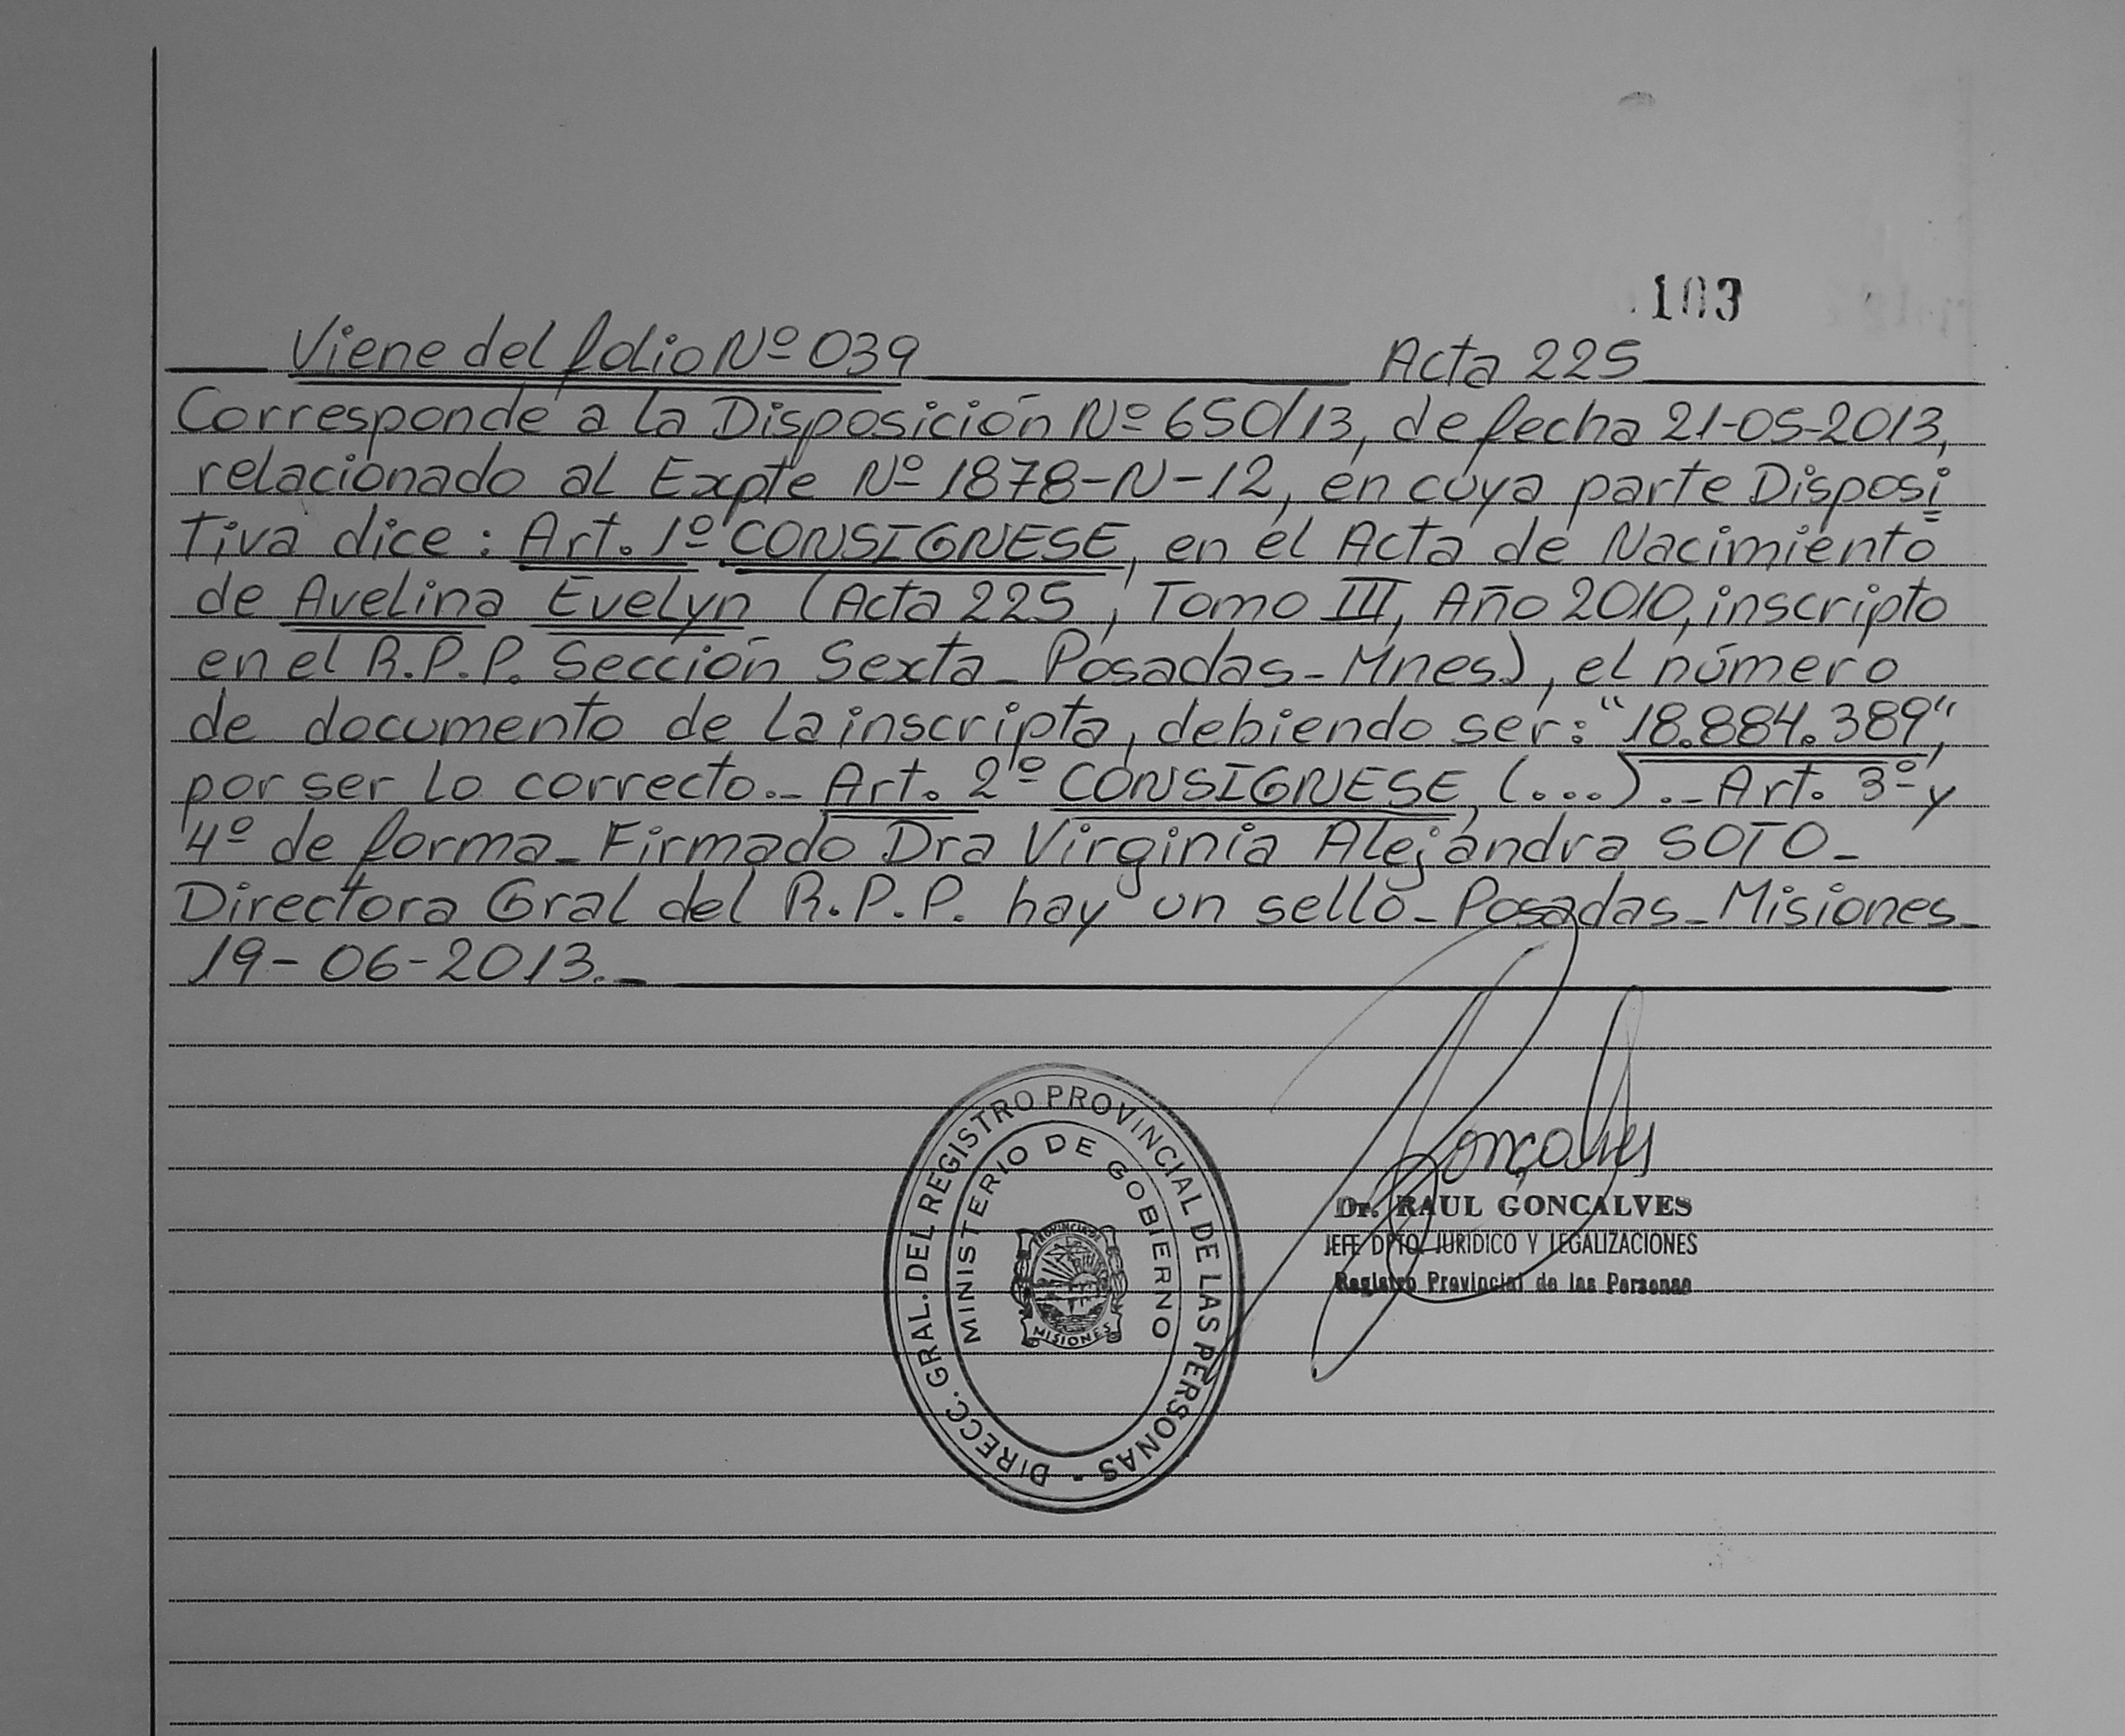 103
Viene del folio Nº 039 Acta 225
Corresponde a la Disposición Nº 650/13, de fecha 21-05-2013,
relacionado al Expte Nº 1878-N-12, en cuya parte Disposi
tiva dice: Art. 1º CONSIGNESE, en el Acta de Nacimiento
de Avelina Evelyn (Acta 225, Tomo III, Año 2010, inscripto
en el R.P.P. Sección Sexta - Posadas - Mnes), el número
de documento de la inscripta, debiendo ser: "18.884.389",
por ser lo correcto.- Art. 2º CONSIGNESE, (...).- Art. 3º y
4º de forma - Firmado Dra Virginia Alejandra SOTO -
Directora Gral del R.P.P. hay un sello - Posadas - Misiones -
19-06-2013.-
DIRECC. GRAL. DEL REGISTRO PROVINCIAL DE LAS PERSONAS -
MINISTERIO DE GOBIERNO
PROVINCIA DE
MISIONES
Goncalves
Dr. RAUL GONCALVES
JEFE DPTO. JURIDICO Y LEGALIZACIONES
Registro Provincial de las Personas